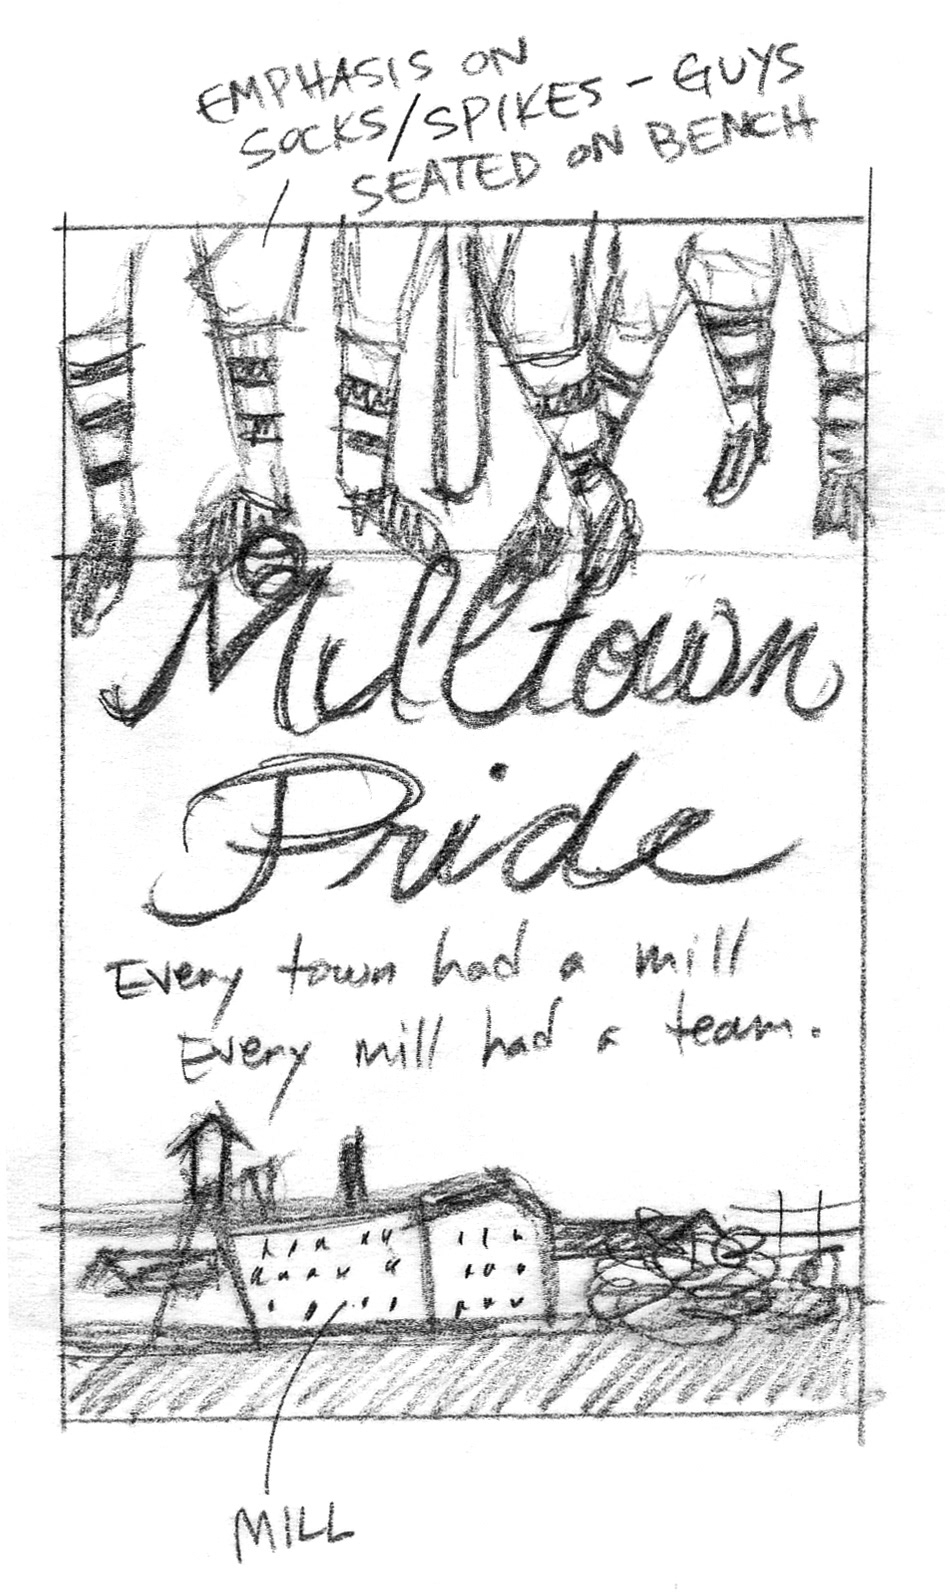 EMPHASIS ON
SOCKS/SPIKES - GUYS
SEATED ON BENCH
Milltown
Pride
Every town had a mill
Every mill had a team.
MILL